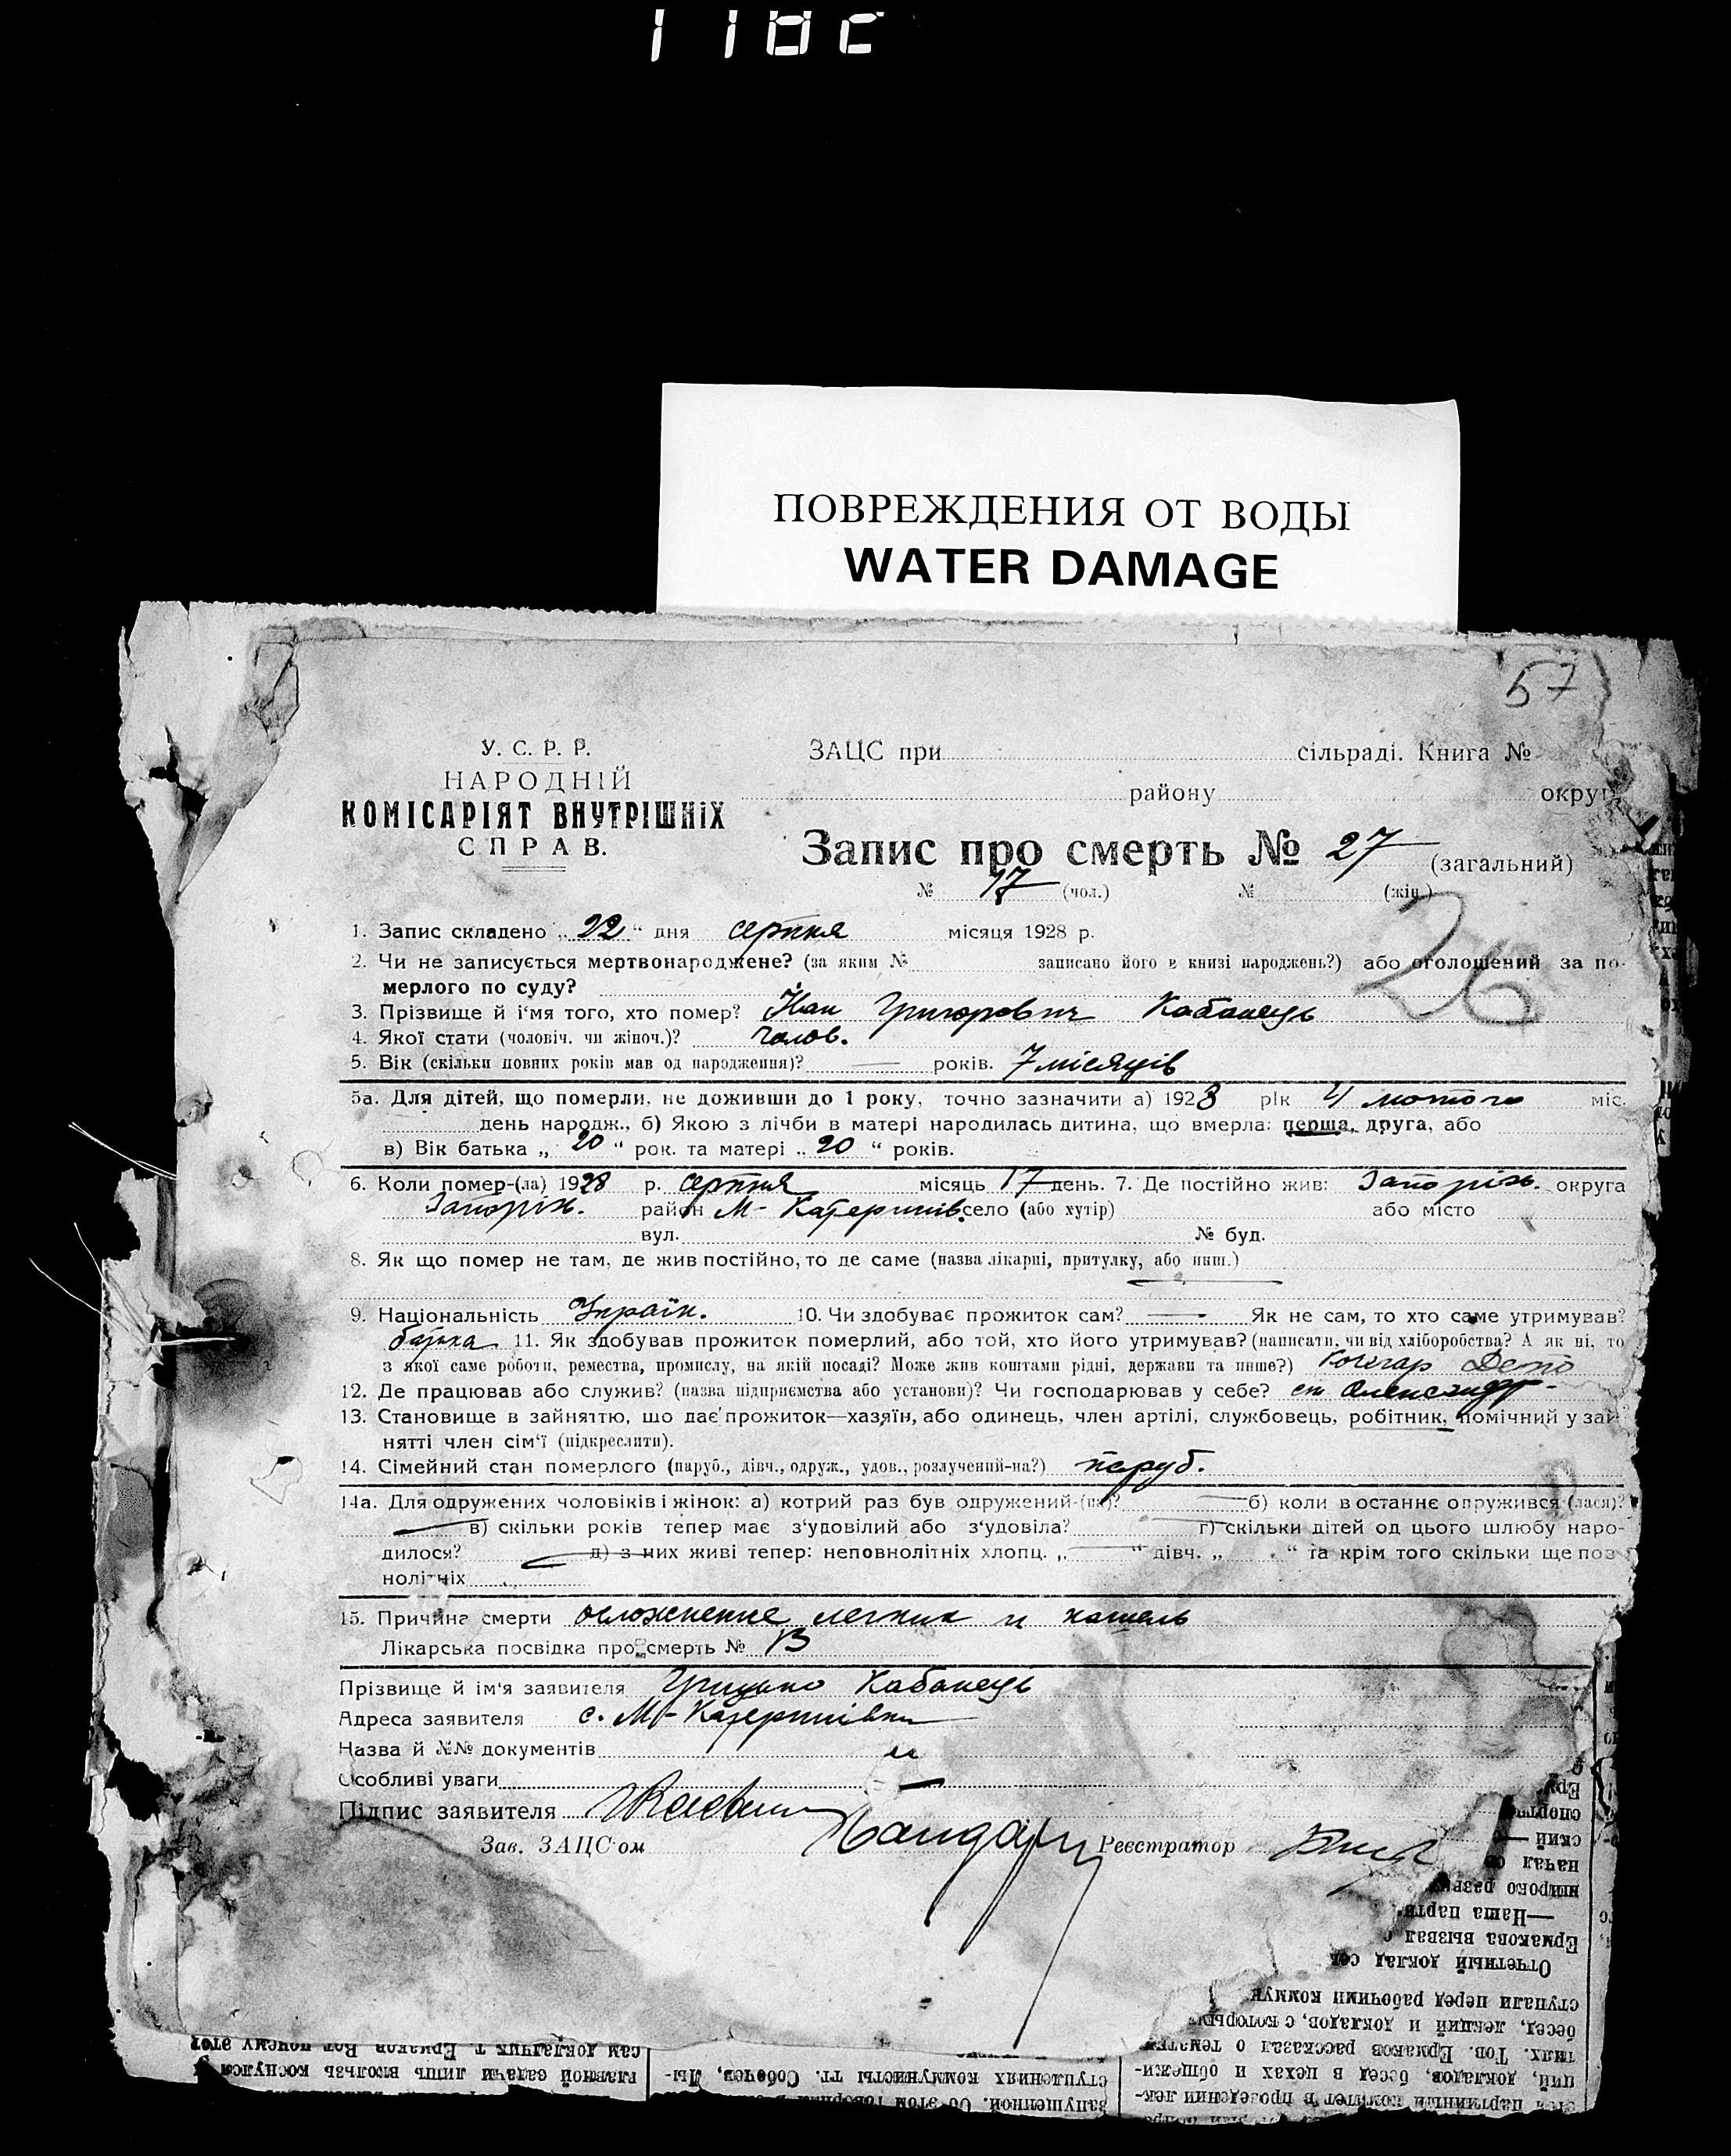 ПОВРЕЖДЕНИЯ ОТ ВОДЫ
WATER DAMAGE
57
У. С. Р. Р.
НАРОДНІЙ
КОМІСАРІЯТ ВНУТРІШНІХ
СПРАВ.
ЗАЦС при сільраді. Книга №
району округ
Запис про смерть № 27 (загальний)
№ 17 (чол.) № (жін.)
26
1. Запис складено „22“ дня серпня місяця 1928 р.
2. Чи не записується мертвонароджене? (за яким № записано його в книзі народжень?) або оголошений за по-
мерлого по суду?
3. Прізвище й ім'я того, хто помер? Григорович Кабанець
4. Якої стати (чоловіч. чи жіноч.)? чолов.
5. Вік (скільки повних років мав од народження)? — років. 7 місяців
5а. Для дітей, що померли, не доживши до 1 року, точно зазначити а) 1928 рік 4 лютого міс.
день народж., б) Якою з лічби в матері народилась дитина, що вмерла: перша, друга, або
в) Вік батька „20“ рок. та матері „20“ років.
6. Коли помер-(ла) 1928 р. серпня місяць 17 день. 7. Де постійно жив: Запоріж. округа
Запоріж. район М-Катеринів. село (або хутір) або місто
вул. № буд.
8. Як що помер не там, де жив постійно, то де саме (назва лікарні, притулку, або инш.) —
9. Національність Україн. 10. Чи здобуває прожиток сам? — Як не сам, то хто саме утримував?
батька 11. Як здобував прожиток померлий, або той, хто його утримував? (написати, чи від хліборобства? А як ні, то
з якої саме роботи, ремества, промислу, на якій посаді? Може жив коштами рідні, держави та инше?) Кочегар Депо
12. Де працював або служив? (назва підприємства або установи)? Чи господарював у себе? ст. Олександр-
13. Становище в зайняттю, що дає прожиток—хазяїн, або одинець, член артілі, службовець, робітник, помічний у зай-
нятті член сім'ї (підкреслити).
14. Сімейний стан померлого (паруб., дівч., одруж., удов., розлучений-на?) паруб.
14а. Для одружених чоловіків і жінок: а) котрий раз був одружений-(на)? — б) коли в останнє одружився (лася)?
— в) скільки років тепер має з'удовілий або з'удовіла? — г) скільки дітей од цього шлюбу наро-
дилося? — д) з них живі тепер: неповнолітніх хлопц. „—“ дівч. „ “ та крім того скільки ще пов-
нолітніх
15. Причина смерти осложнение легких и кашель
Лікарська посвідка про смерть №
Прізвище й ім'я заявителя Грицько Кабанець
Адреса заявителя с. М-Катеринівка
Назва й №№ документів
Особливі уваги —
Підпис заявителя
Зав. ЗАЦС'ом Реєстратор
Ер
спорт
ский —
начал
широко
—Наша парти
Ермакова вызвал
Отчетный доклад сек
ступали перед рабочими коммун
бесед, лекций и докладов, с которы
тиях. Тов. Ермаков рассказал о тематик
ций, докладов, бесед в цехах и общежи-
партийный комитет в проведении лек-
запущенной. Об этом
ступлениях коммунисты тт. Соболев, Лы-
главной задачи лишь вскользь коснулся
сам докладчик т. Ермаков. Вот почему этот